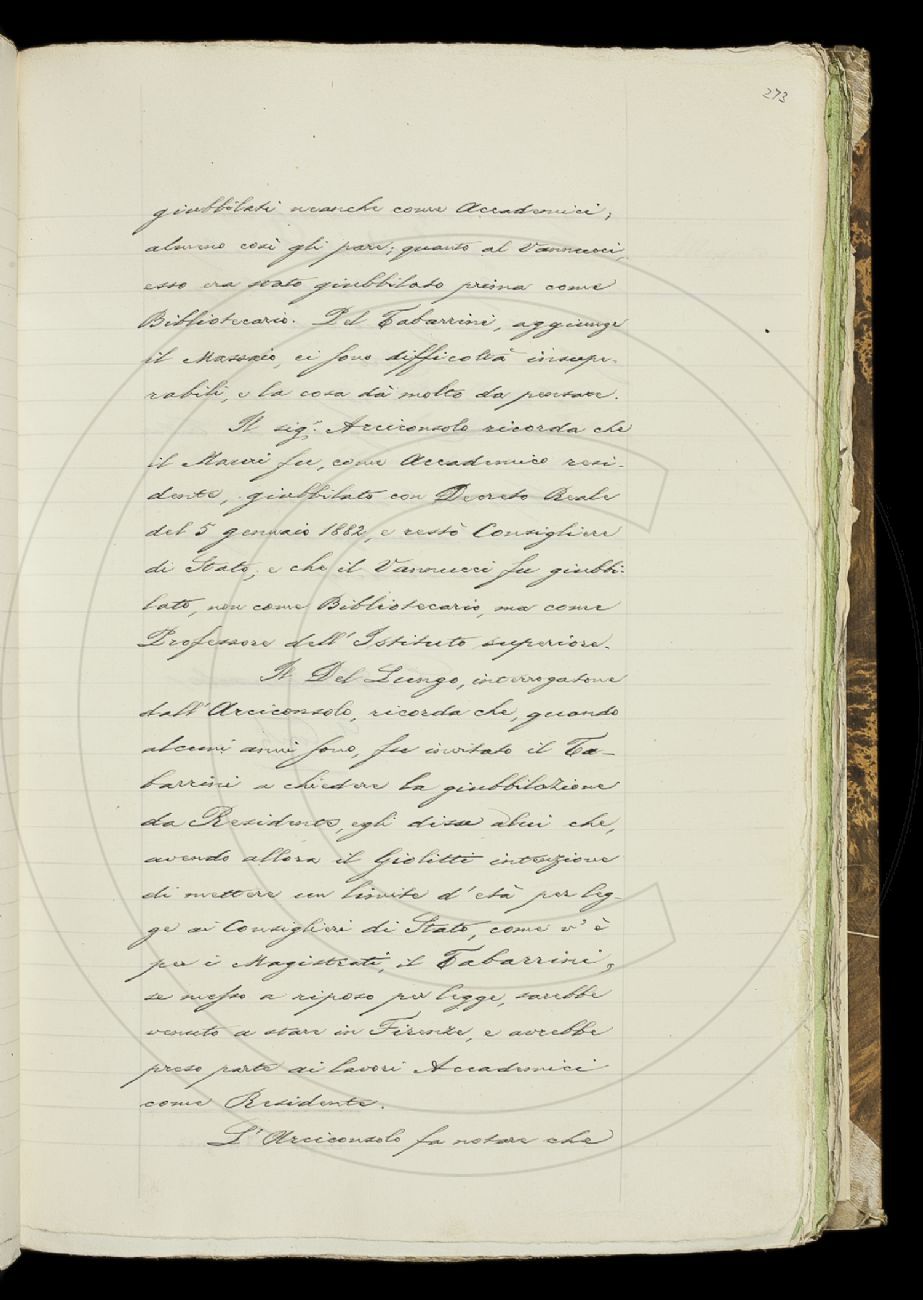 273
giubbilati neanche come Accademici,
almeno così gli pare; quanto al Vannucci,
esso era stato giubbilato prima come
Bibliotecario. Del Tabarrini, aggiunge
il Massaio, ci sono difficoltà insupe-
rabili, e la cosa dà molto da pensare.
Il sig.r Arciconsolo ricorda che
il Mauri fu, come Accademico resi-
dente, giubbilato con Decreto Reale
del 5 gennaio 1882, e restò Consigliere
di Stato; e che il Vannucci fu giubbi-
lato, non come Bibliotecario, ma come
Professore dell'Istituto superiore.
Il Del Lungo, interrogatone
dall'Arciconsolo, ricorda che, quando
alcuni anni sono, fu invitato il Ta-
barrini a chiedere la giubbilazione
da Residente, egli disse a lui che,
avendo allora il Giolitti intenzione
di mettere un limite d'età per leg-
ge ai Consiglieri di Stato, come v'è
per i Magistrati, il Tabarrini,
se messo a riposo per legge, sarebbe
venuto a stare in Firenze, e avrebbe
preso parte ai lavori Accademici
come Residente.
L'Arciconsolo fa notare che